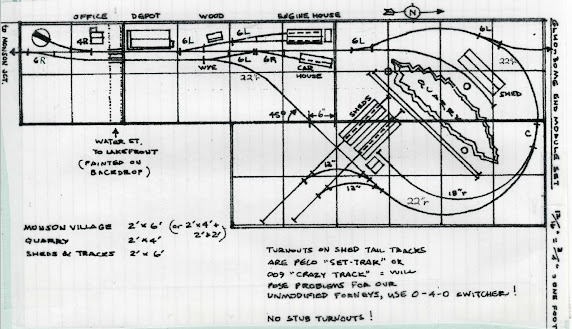 OFFICE DEPOT WOOD ENGINE HOUSE
N
TO MONSON JCT.
4R
6R
6L
6L
6L
6R
WYE
CAR HOUSE
22"r
6L
6L
22"r
SHED
QUARRY
SHEDS
45°
6"
C
12"
12"
18"r
22"r
WATER ST.
TO LAKEFRONT
(PAINTED ON
BACKDROP)
MONSON VILLAGE 2'x 6' (or 2'x 4' +
2'x 2')
QUARRY 2'x 4'
SHEDS & TRACKS 2'x 6'
TURNOUTS ON SHED TAIL TRACKS
ARE PECO "SET-TRAK" OR
009 "CRAZY TRACK" = WILL
POSE PROBLEMS FOR OUR
UNMODIFIED FORNEYS, USE 0-4-0 SWITCHER!
NO STUB TURNOUTS!
= ONE FOOT